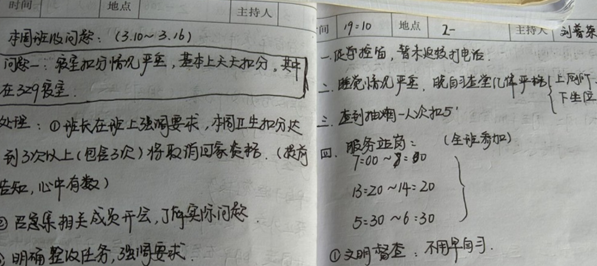 时间 地点 主持人
本周班级问题：（3.10～3.16）
问题一：寝室扣分情况严重，基本上天天扣分，其中
在329寝室.
处理：①班长在班上强调要求，本周卫生扣分达
到3次以上（包含3次）将取消回家资格.（提前
告知，心中有数）
②召集相关成员开会，了解实际问题
③明确整改任务，强调要求.
间 19:10 地点 2- 主持人
一.
二.睡觉情况严重.
三.查到抽烟一人次扣5'
四.服务站岗：（全班参加）
7:00～8:00
13:20～14:20
5:30～6:30
①文明督查：不用早自习.